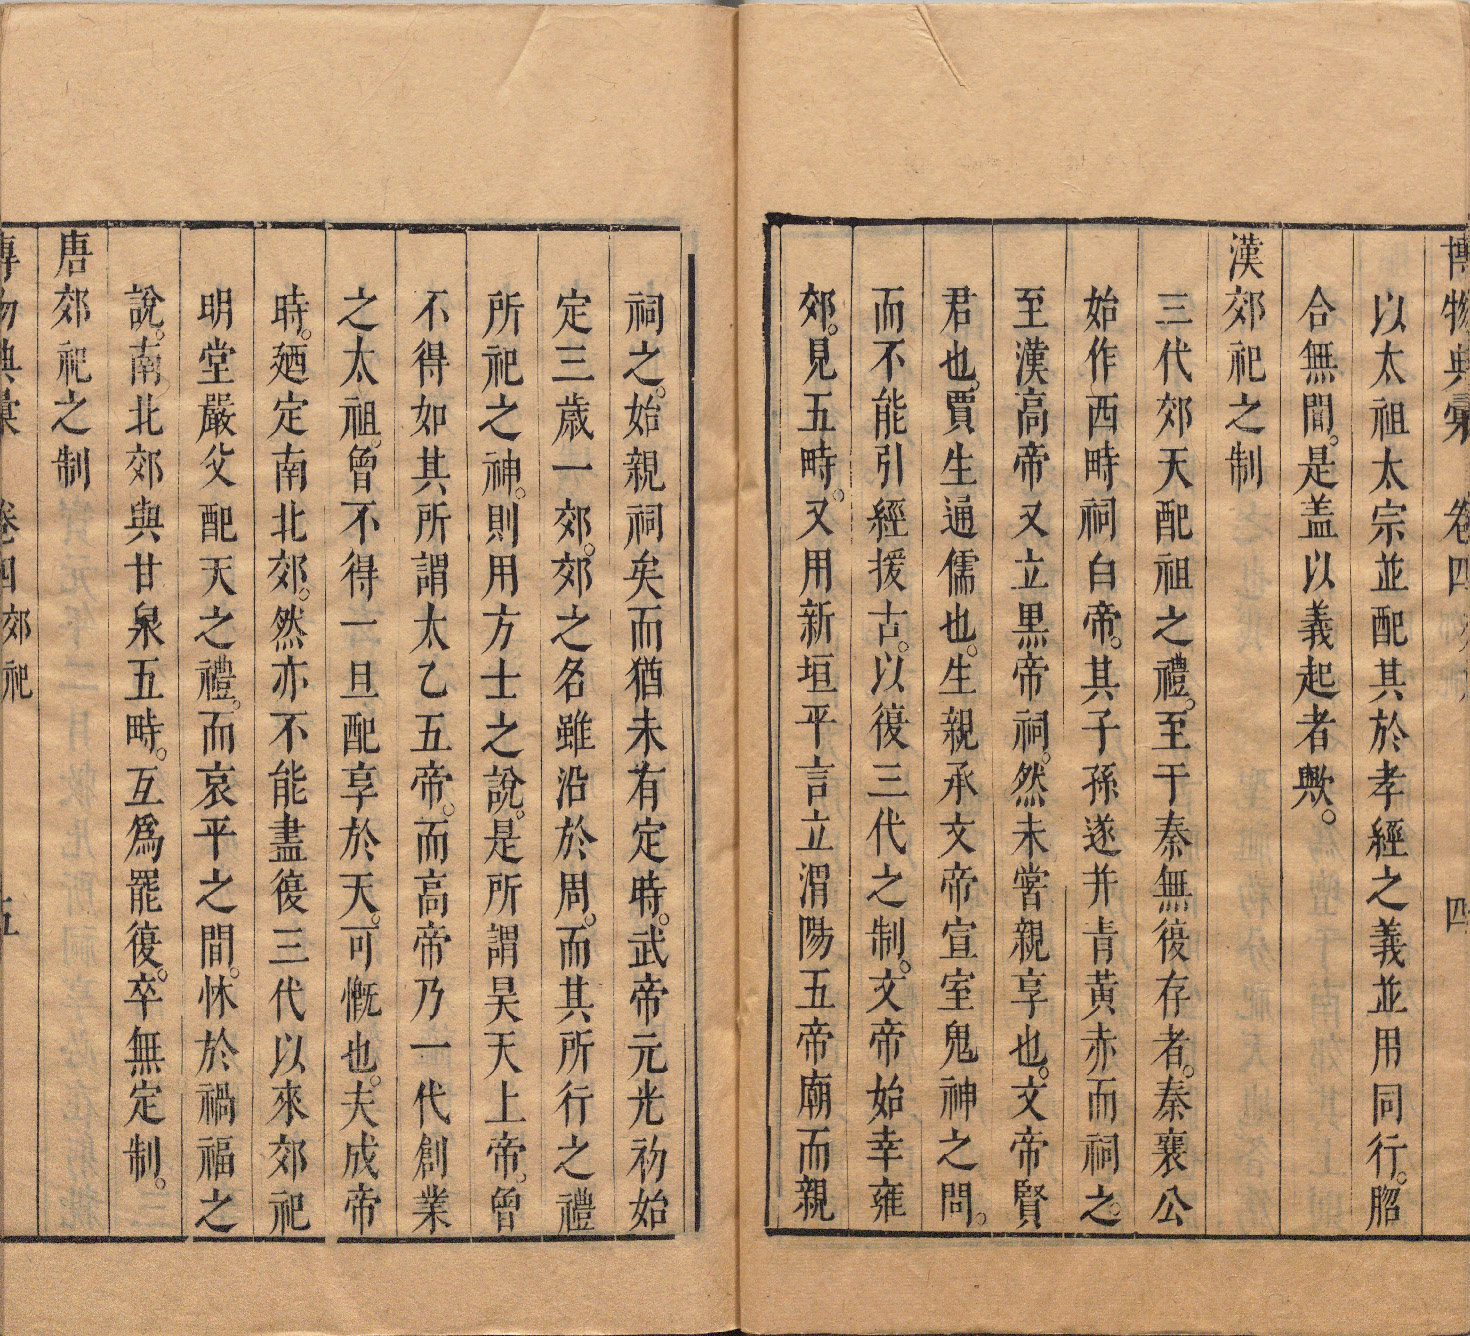 博物典彙 卷四 四
以太祖太宗並配其於孝經之義並用同行。脗
合無間。是盖以義起者歟。
漢郊祀之制
三代郊天配祖之禮。至于秦無復存者。秦襄公
始作西畤祠白帝。其子孫遂并青黃赤而祠之。
至漢高帝又立黒帝祠。然未嘗親享也。文帝賢
君也。賈生通儒也。生親承文帝宣室鬼神之問。
而不能引經援古。以復三代之制。文帝始幸雍
郊。見五畤。又用新垣平言立渭陽五帝廟而親
祠之。始親祠矣而猶未有定時。武帝元光初始
定三歲一郊。郊之名雖沿於周。而其所行之禮
所祀之神。則用方士之說。是所謂昊天上帝。曾
不得如其所謂太乙五帝。而高帝乃一代創業
之太祖。曾不得一旦配享於天。可慨也。夫成帝
時。廼定南北郊。然亦不能盡復三代以來郊祀
明堂嚴父配天之禮。而哀平之間。怵於禍福之
說。南北郊與甘泉五畤。互爲罷復。卒無定制。
唐郊祀之制
博物典彙 卷四 郊祀 五